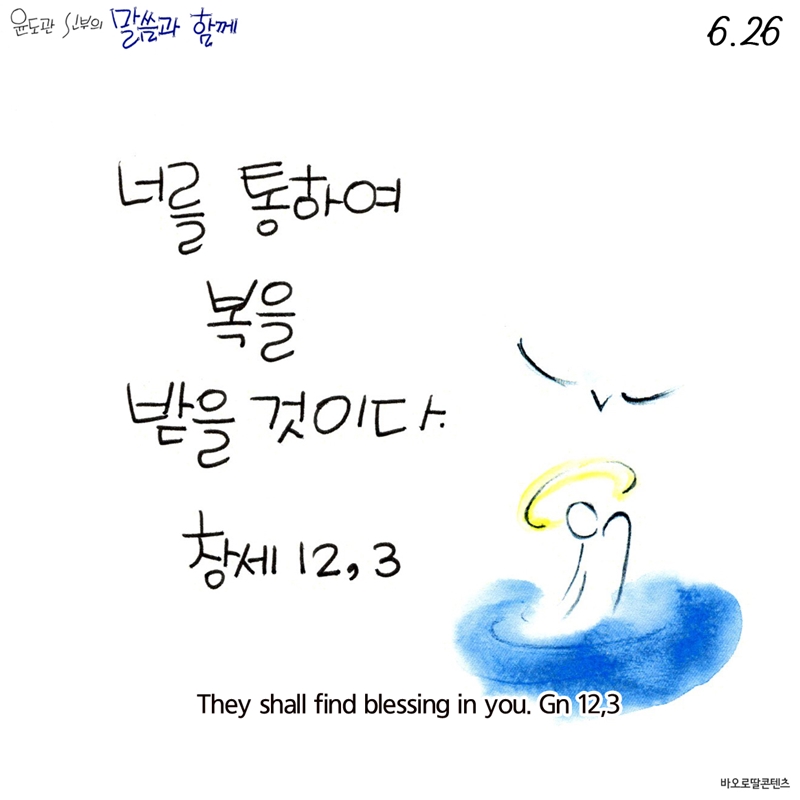 윤도관 신부의 말씀과 함께
6.26
너를 통하여
복을
받을 것이다.
창세 12,3
They shall find blessing in you. Gn 12,3
바오로딸콘텐츠